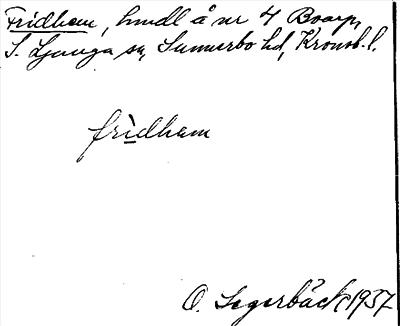 Fridhem, hmdl å nr 4 Boarp,
S. Ljunga sn, Sunnerbo hd, Kronob. l.
frìdhem
O. Segerbäck 1937